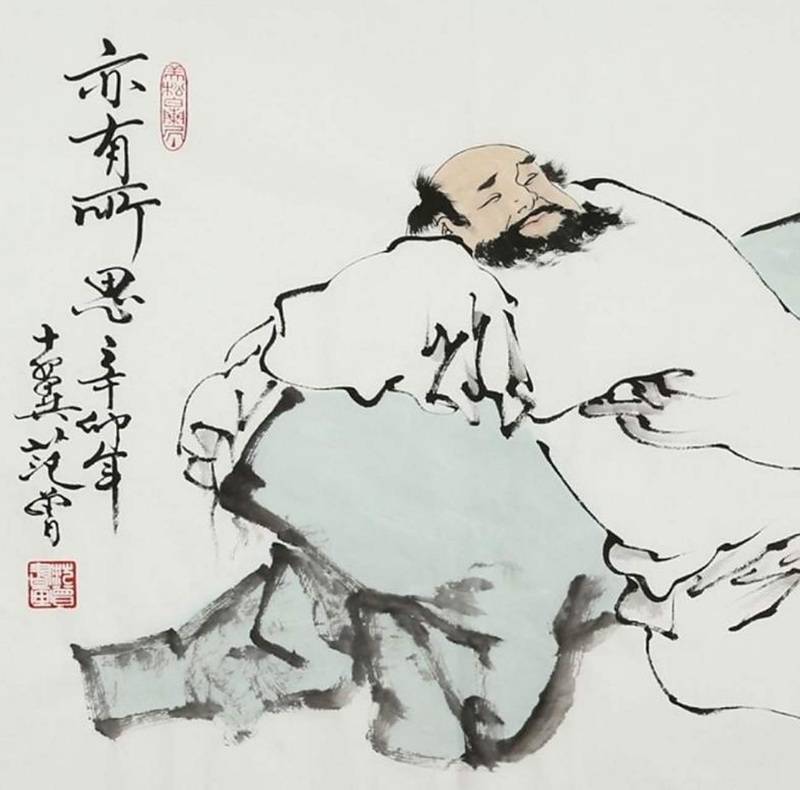 亦有所思 辛卯年
十翼范曾